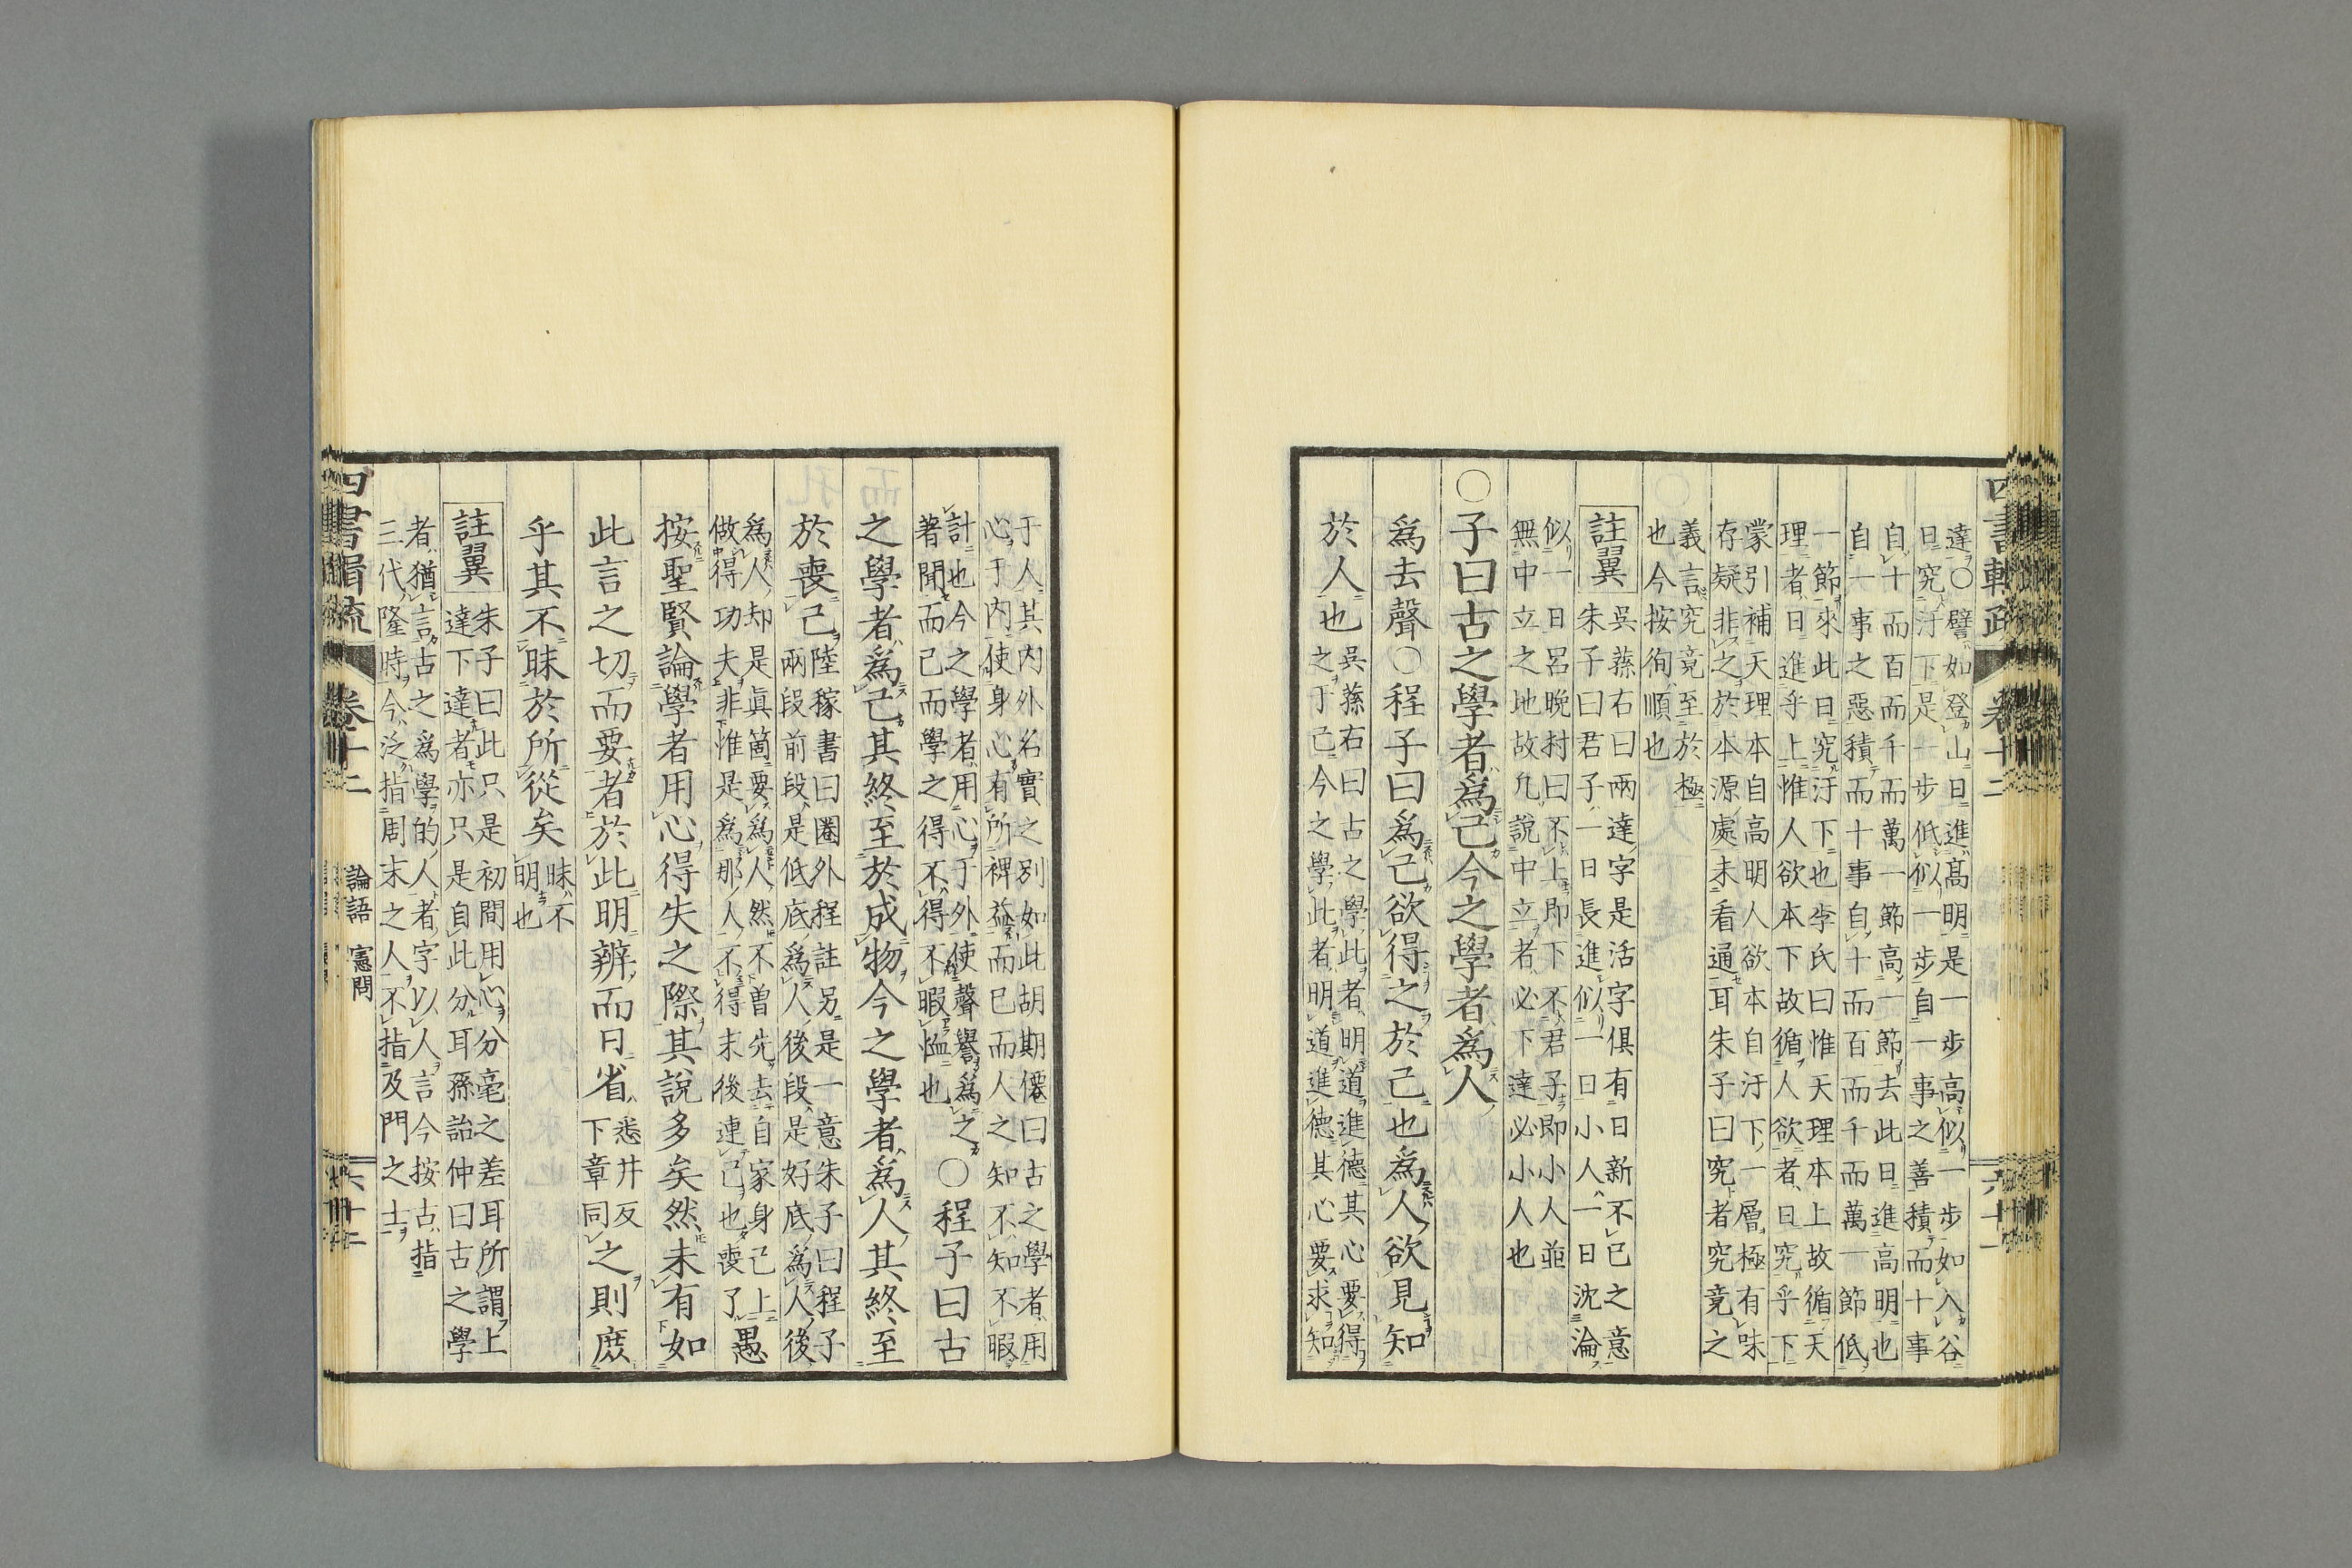 達○譬如登山日進高明是一步高似一步如入谷
日究汙下是一步低似一步自一事之善積而十事
自十而百而千而萬一節高一節去此日進高明也
自一事之惡積而十事自十而百而千而萬一節低
一節來此日究汙下也李氏曰惟天理本上故循天
理者日進乎上惟人欲本下故循人欲者日究乎下
蒙引補天理本自高明人欲本自汙下一層極有味
存疑非之於本源處未看通耳朱子曰究者究竟之
義言究竟至於極
也今按徇順也
註翼
吳蓀右曰兩達字是活字俱有日新不已之意
朱子曰君子一日長進似一日小人一日沈淪
似一日呂晚村曰不上即下不君子即小人並
無中立之地故凡說中立者必下達必小人也
○子曰古之學者爲己今之學者爲人
爲去聲○程子曰爲己欲得之於己也爲人欲見知
於人也
吳蓀右曰古之學此者明道進德其心要得
之于己今之學此者明道進德其心要求知
于人其內外名實之別如此胡期僊曰古之學者用
心于內使身心有所裨益而已而人之知不知不暇
計也今之學者用心于外使聲譽爲之
著聞而己而學之得不得不暇恤也
○程子曰古
之學者爲己其終至於成物今之學者爲人其終至
於喪己
陸稼書曰圈外程註另是一意朱子曰程子
兩段前段是低底爲人後段是好底爲人後
爲人却是眞箇要爲人然不曾先去自家身己上
做得功夫非惟是爲那人不得末後連己也喪了
愚
按聖賢論學者用心得失之際其說多矣然未有如
此言之切而要者於此明辨而日省
悉井反
下章同
之則庶
乎其不昧於所從矣
昧不
明也
註翼
朱子曰此只是初間用心分毫之差耳所謂上
達下達者亦只是自此分耳孫詒仲曰古之學
者猶言古之爲學的人者字以人言今按古指
三代隆時今泛指周末之人不指及門之士
卷十二
論語
憲問
六十二
卷十二
六十一